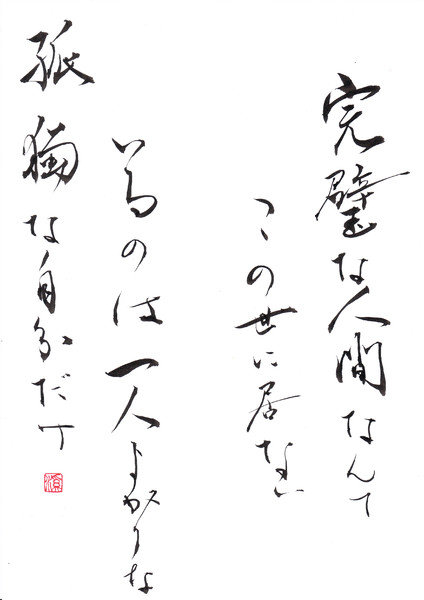 完璧な人間なんて
この世に居ない
いるのは一人よがりな
孤獨な自分だけ